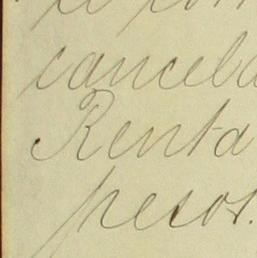 cancela
Renta
pesos.